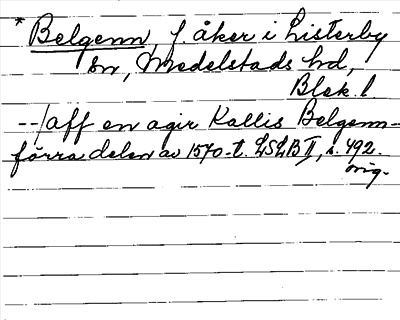 * Belgenn, f. åker i Listerby
sn, Medelstads hd,
Blek. l
--/aff en agir Kallis Belgenn-
förra delen av 1570-t. LSLB II, s. 492.
orig.